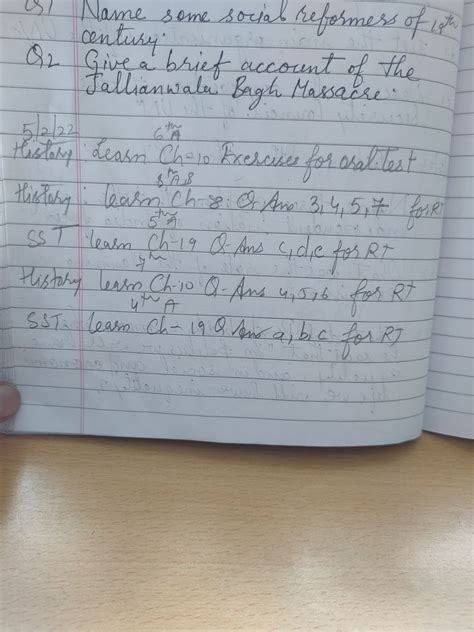 Q1 Name some social reformers of 19th
century.
Q2 Give a brief account of the
Jallianwala Bagh Massacre.
5/2/22
6th A
History: Learn Ch-10 Exercises for oral test
8th A,B
History: learn Ch-8: Q-Ans 3,4,5,7 for RT
5th A
SST learn Ch-19 Q-Ans c,d,e for RT
7th
History learn Ch-10 Q-Ans 4,5,6 for RT
4th A
SST: learn Ch-19 Q Ans a,b,c for RT